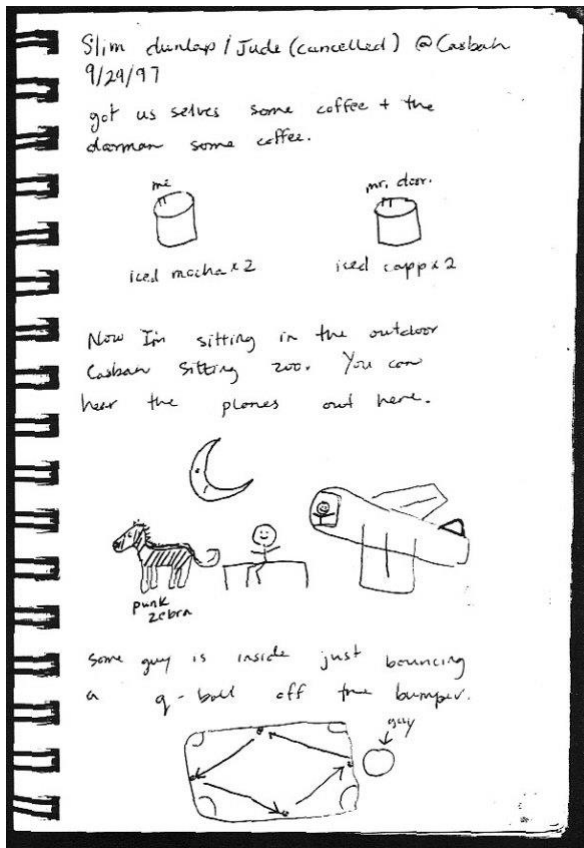 Slim dunlap / Jude (cancelled) @ Casbah
9/29/97
got us selves some coffee + the
doorman some coffee.
me
mr. door.
iced mocha x 2
iced capp x 2
Now I'm sitting in the outdoor
Casbah sitting zoo. You can
hear the planes out here.
punk
zebra
some guy is inside just bouncing
a q-ball off the bumper.
guy